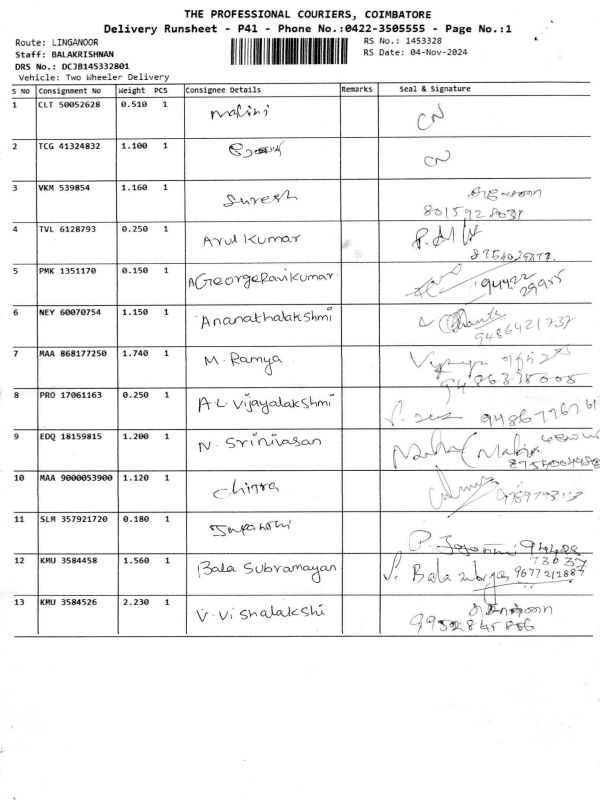 THE PROFESSIONAL COURIERS, COIMBATORE
Delivery Runsheet - P41 - Phone No.:0422-3505555 - Page No.:1
Route: LINGANOOR
RS No.: 1453328
Staff: BALAKRISHNAN
RS Date: 04-Nov-2024
DRS No.: DCJB145332801
Vehicle: Two Wheeler Delivery
S No Consignment No Weight PCS Consignee Details Remarks Seal & Signature
1 CLT 50052628 0.510 1 Malini CN
2 TCG 41324832 1.100 1 CN
3 VKM 539854 1.160 1 Suresh
8015928031
4 TVL 6128793 0.250 1 Arul Kumar
5 PMK 1351170 0.150 1 A George Ravi Kumar 94422
6 NEY 60070754 1.150 1 Ananathalakshmi
9486421737
7 MAA 868177250 1.740 1 M. Ramya
8 PRO 17061163 0.250 1 A.L. Vijayalakshmi
9 EDQ 18159815 1.200 1 N. Srinivasan
10 MAA 9000053900 1.120 1 Chitra
11 SLM 357921720 0.180 1
12 KMU 3584458 1.560 1 Bala Subramayan 9677212887
13 KMU 3584526 2.230 1 V. Vishalakshi
9952845856